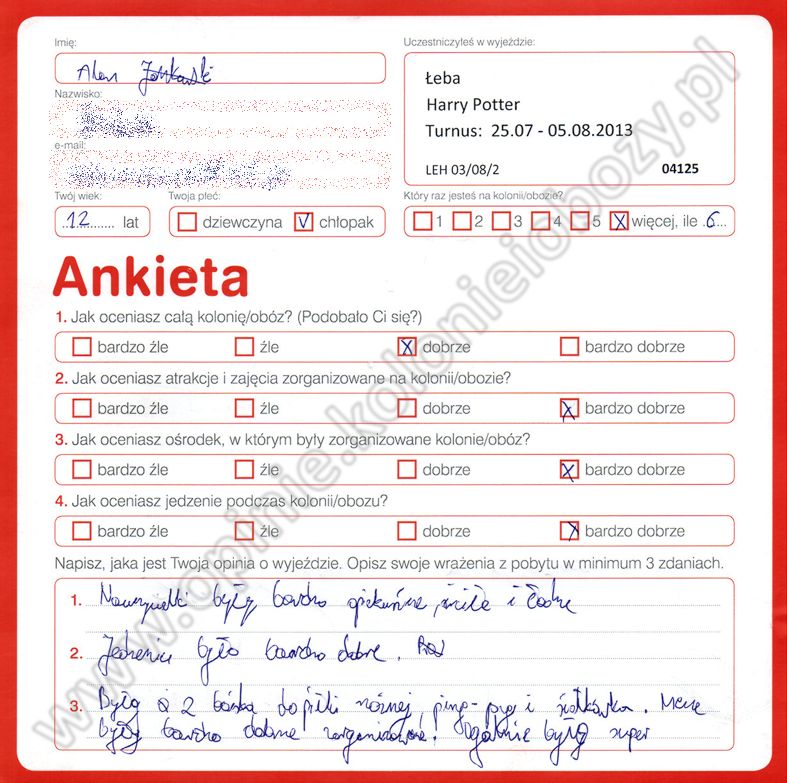 Imię:
Alan
Nazwisko:
e-mail:
Twój wiek:
12 lat
Twoja płeć:
dziewczyna V chłopak
Uczestniczyłeś w wyjeździe:
Łeba
Harry Potter
Turnus: 25.07 - 05.08.2013
LEH 03/08/2 04125
Który raz jesteś na kolonii/obozie?
1 2 3 4 5 X więcej, ile 6
Ankieta
1. Jak oceniasz całą kolonię/obóz? (Podobało Ci się?)
bardzo źle źle X dobrze bardzo dobrze
2. Jak oceniasz atrakcje i zajęcia zorganizowane na kolonii/obozie?
bardzo źle źle dobrze X bardzo dobrze
3. Jak oceniasz ośrodek, w którym były zorganizowane kolonie/obóz?
bardzo źle źle dobrze X bardzo dobrze
4. Jak oceniasz jedzenie podczas kolonii/obozu?
bardzo źle źle dobrze X bardzo dobrze
Napisz, jaka jest Twoja opinia o wyjeździe. Opisz swoje wrażenia z pobytu w minimum 3 zdaniach.
1. były bardzo opiekuńcze, miłe i ładne
2. Jedzenie było bardzo dobre.
3. Były 2 boiska do piłki nożnej, ping-pong i siatkówka. Mecze
były bardzo dobrze zorganizowane. Ogólnie było super
www.opinie.kolonieiobozy.pl